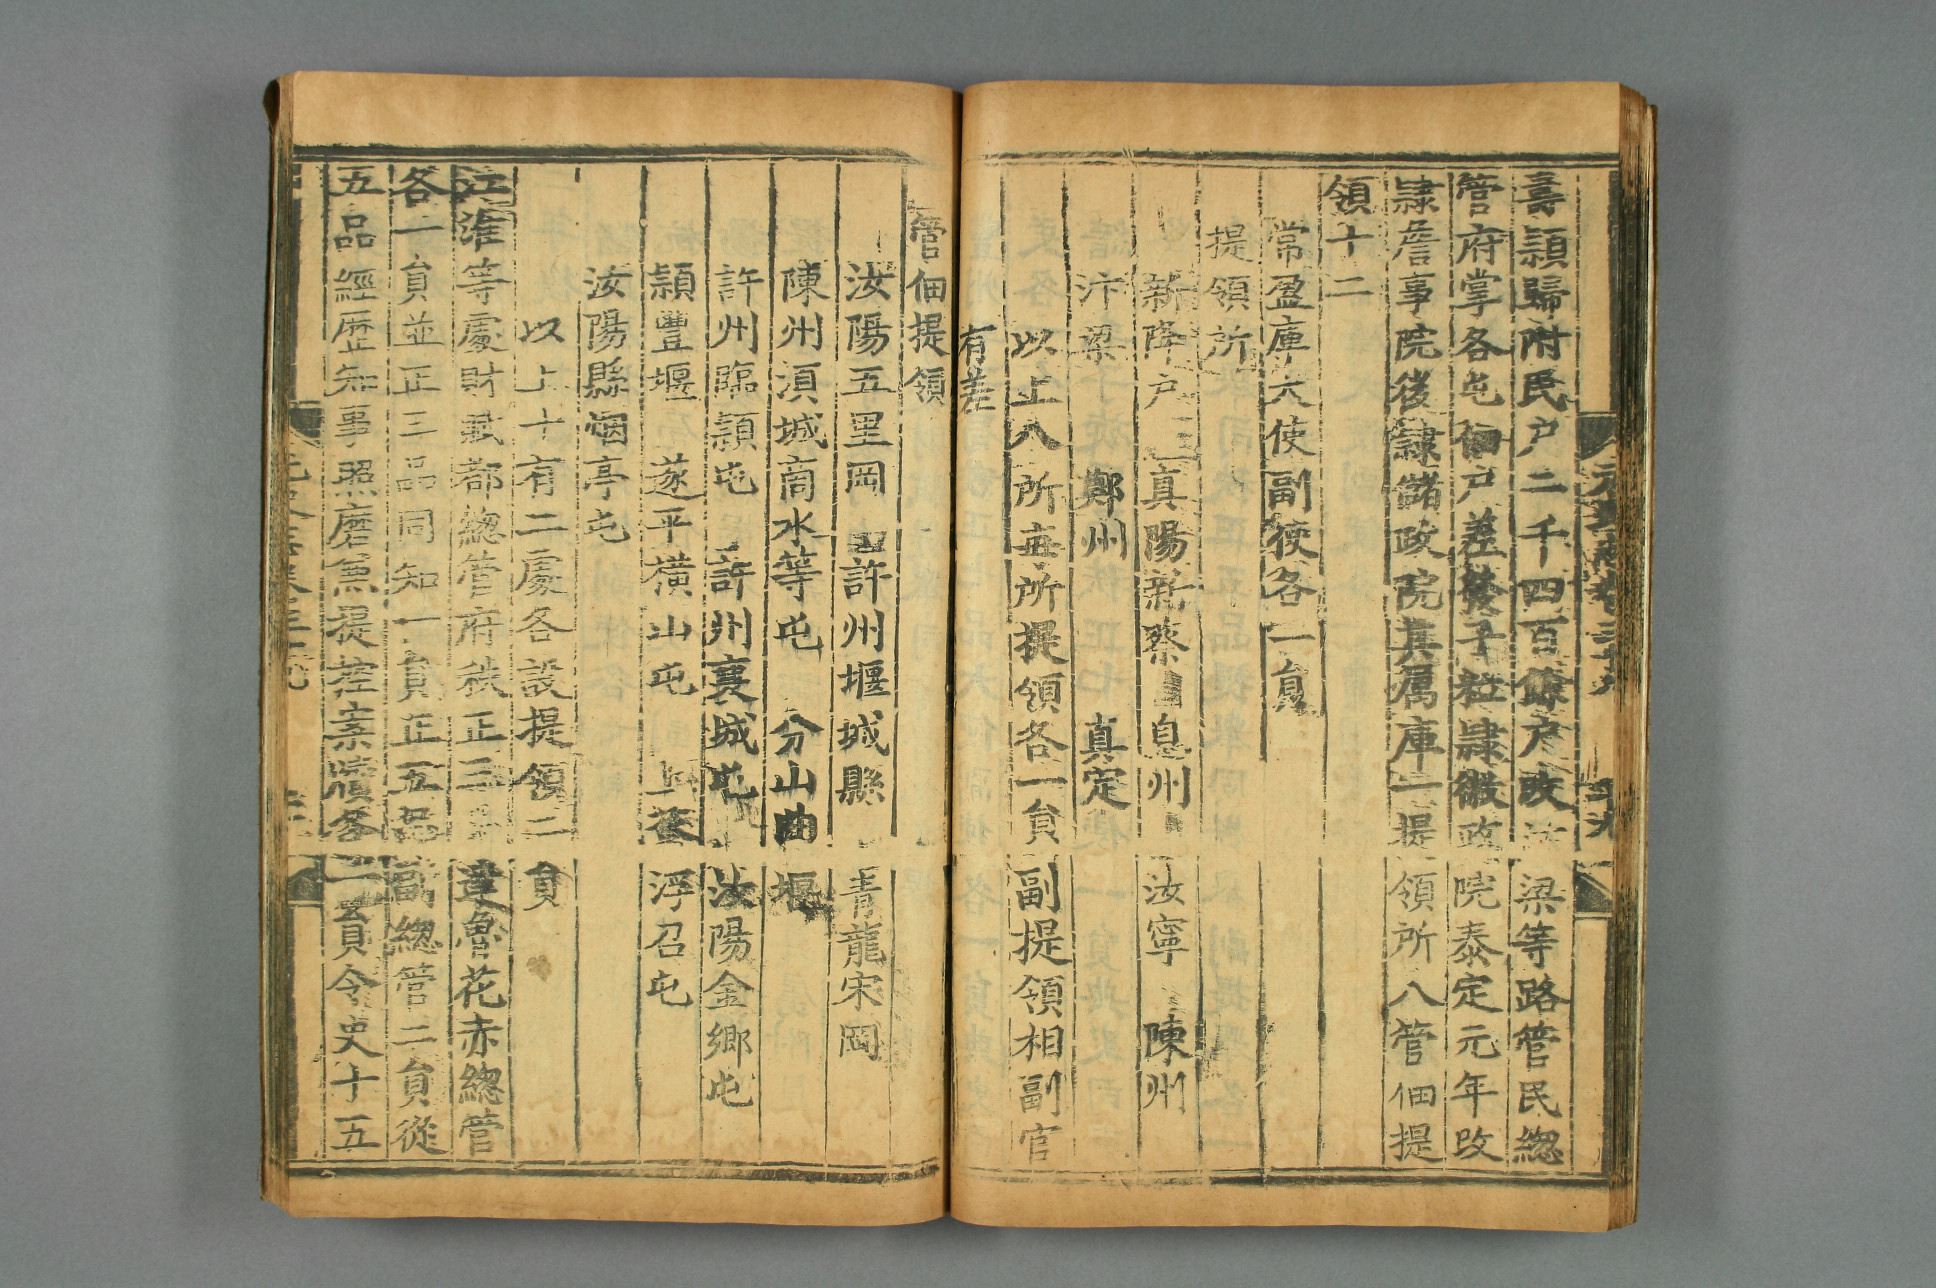 壽頴歸附民户二千四百餘户改汴梁等路管民緫
管府掌各屯佃户差發子粒隷徽政院泰定元年改
隷詹事院後隷儲政院其属庫一提領所八管佃提
領十二
常盈庫大使副使各一貟
提領所
新降户 真陽新蔡 息州 汝寧 陳州
汴梁 鄭州 真定
以上八所每所提領各一貟副提領相副官
有差
管佃提領
汝陽五里岡 許州堰城縣 青龍宋岡
陳州湏城商水等屯 分山曲堰
許州臨頴屯 許州襄城屯 汝陽金鄉屯
頴豐堰 遂平横山屯 上蔡浮召屯
汝陽縣烟亭屯
以上十有二處各設提領二貟
江淮等處財賦都緫管府秩正三品達魯花赤緫管
各一貟並正三品同知一貟正五品副緫管二貟從
五品經歴知事照磨兼提控案牘各一貟令史十五